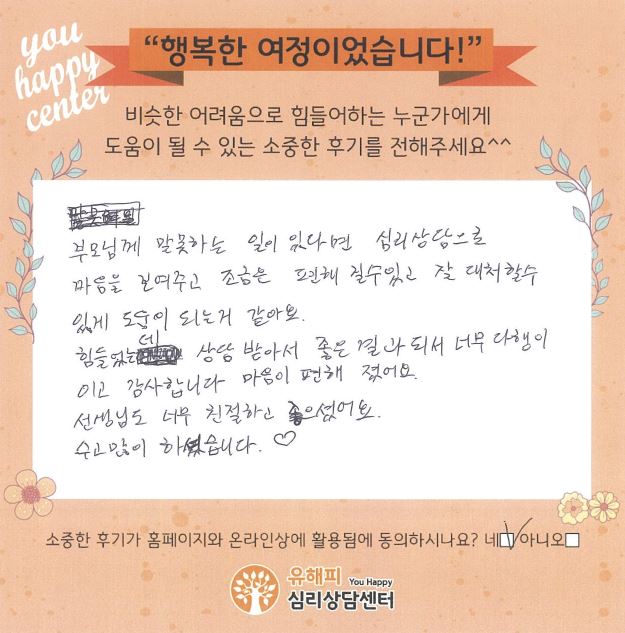 you
happy
center
“행복한 여정이었습니다!”
비슷한 어려움으로 힘들어하는 누군가에게
도움이 될 수 있는 소중한 후기를 전해주세요^^
부모님께 말못하는 일이 있다면 심리상담으로
마음을 보여주고 조금은 편해 질수있고 잘 대처할수
있게 도움이 되는거 같아요.
힘들었는데 상담 받아서 좋은 결과 되서 너무 다행이
이고 감사합니다 마음이 편해 졌어요.
선생님도 너무 친절하고 좋으셨어요.
수고많이 하셨습니다. ♡
소중한 후기가 홈페이지와 온라인상에 활용됨에 동의하시나요? 네☑ 아니오□
유해피 You Happy
심리상담센터